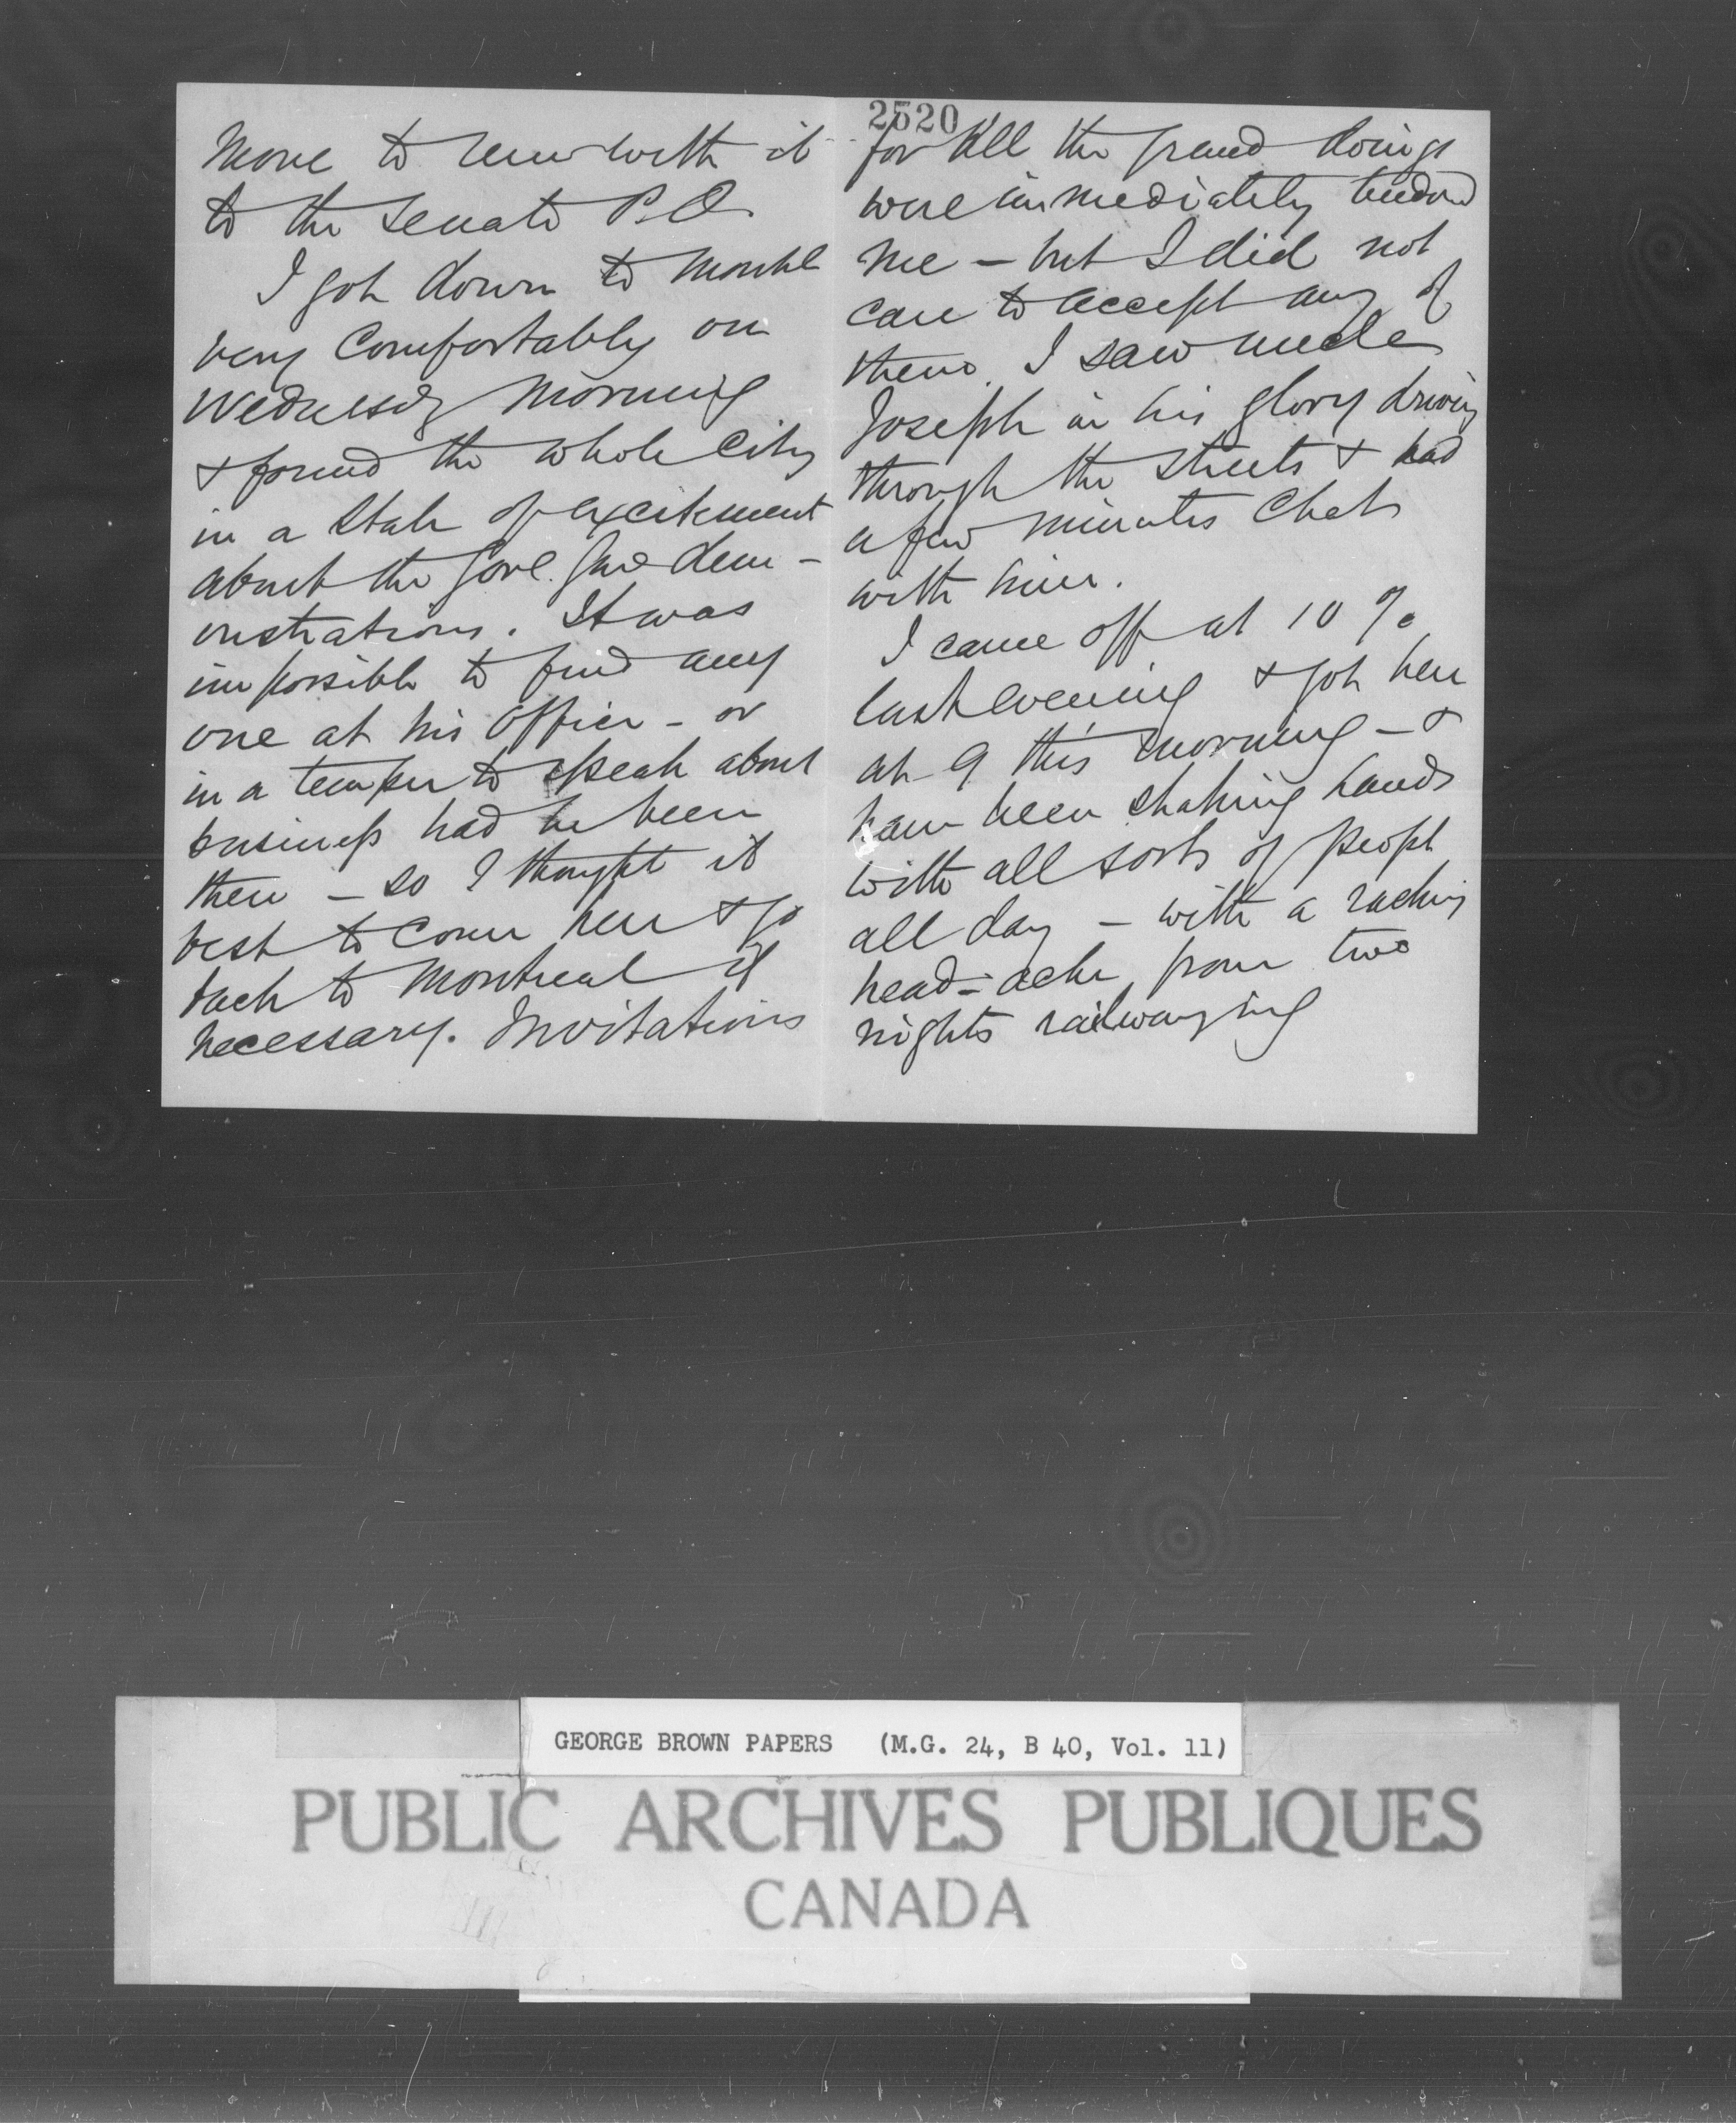 move to run with it
to the Senate P.O.
I got down to Montl
very comfortably on
Wednesdy morning
& found the whole city
in a state of excitement
about the Gov. Gnl dem-
onstrations. It was
impossible to find any
one at his office - or
in a temper to speak about
business had he been
there - so I thought it
best to come here & go
back to Montreal if
necessary. Invitations
2520
for all the grand doings
were immediately tendered
me - but I did not
care to accept any of
them. I saw uncle
Joseph in his glory driving
through the streets & had
a few minutes chat
with him.
I came off at 10 %
last evening & got here
at 9 this morning - &
have been shaking hands
with all sorts of people
all day - with a racking
head-ache from two
nights railwaying
GEORGE BROWN PAPERS (M.G. 24, B 40, Vol. 11)
PUBLIC ARCHIVES PUBLIQUES
CANADA